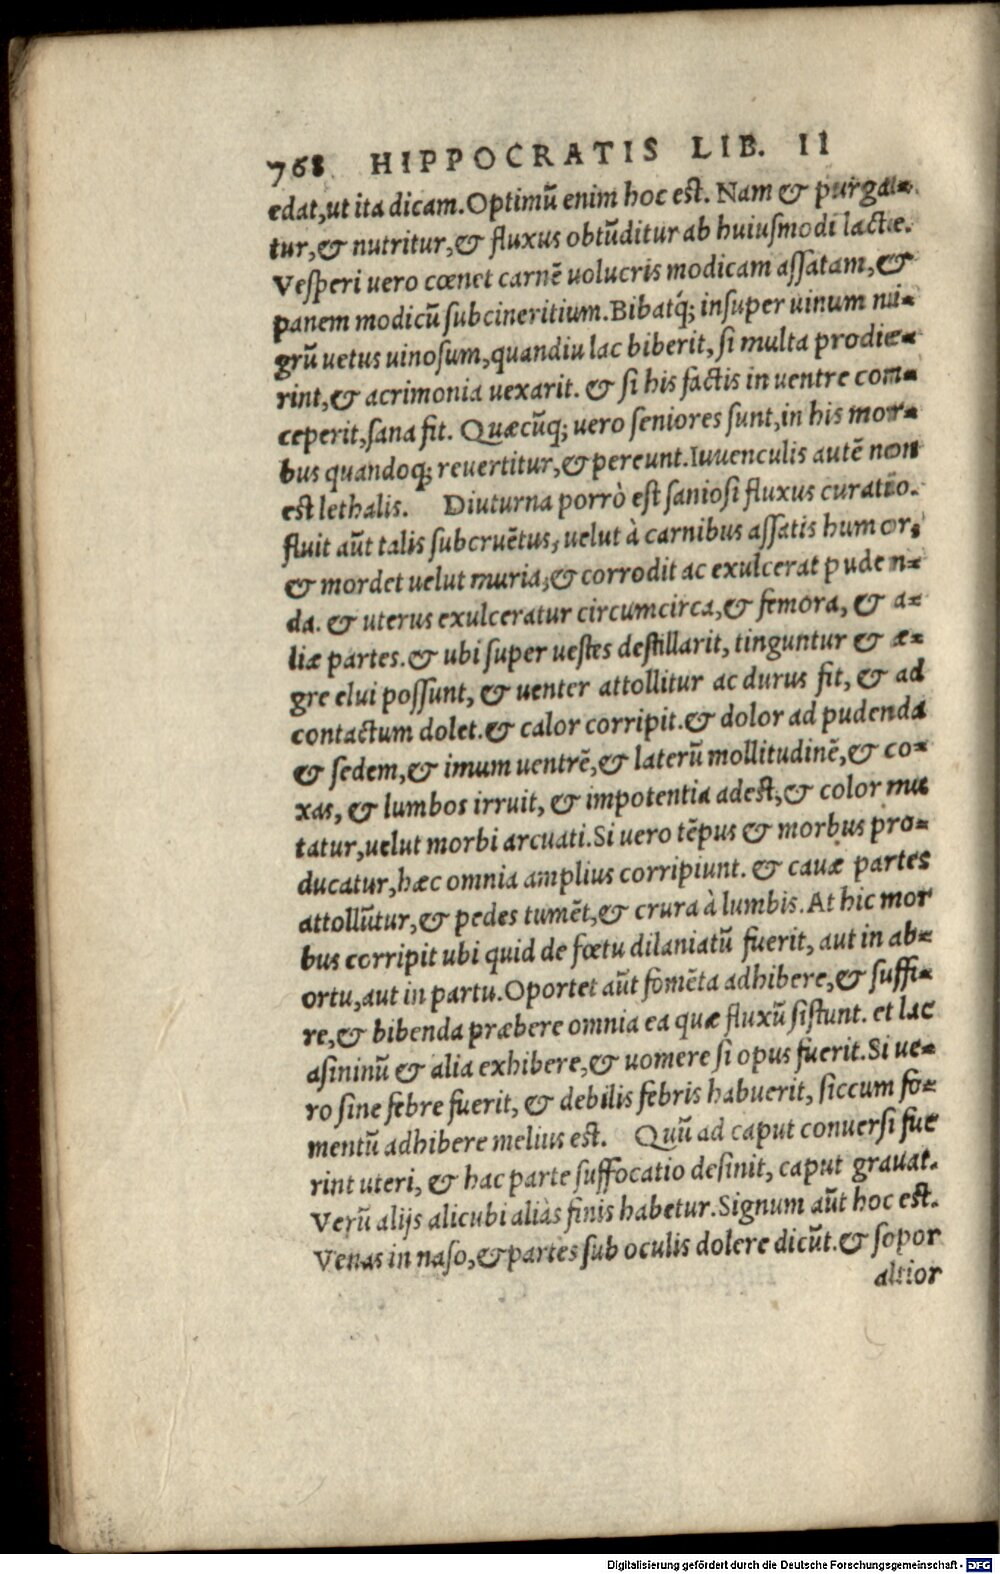 768 HIPPOCRATIS LIB. II
edat,ut ita dicam.Optimū enim hoc est. Nam & purga-
tur,& nutritur,& fluxus obtūditur ab huiusmodi lacte.
Vesperi uero cœnet carnē uolucris modicam assatam,&
panem modicū subcineritium.Bibatq́; insuper uinum ni-
grū uetus uinosum,quandiu lac biberit, si multa prodie-
rint,& acrimonia uexarit. & si his factis in uentre con-
ceperit,sana fit. Quæcūq; uero seniores sunt,in his mor-
bus quandoq; reuertitur,& pereunt.Iuuenculis autē non
est lethalis. Diuturna porrò est saniosi fluxus curatio.
fluit aūt talis subcruētus, uelut à carnibus assatis humor,
& mordet uelut muria,& corrodit ac exulcerat puden-
da. & uterus exulceratur circumcirca,& femora, & a-
liæ partes.& ubi super uestes destillarit, tinguntur & æ-
gre elui possunt, & uenter attollitur ac durus fit, & ad
contactum dolet.& calor corripit.& dolor ad pudenda
& sedem,& imum uentrē,& laterū mollitudinē,& co-
xas, & lumbos irruit, & impotentia adest,& color mu
tatur,uelut morbi arcuati.Si uero tēpus & morbus pro-
ducatur,hæc omnia amplius corripiunt. & cauæ partes
attollūtur,& pedes tumēt,& crura à lumbis. At hic mor
bus corripit ubi quid de fœtu dilaniatū fuerit, aut in ab-
ortu,aut in partu.Oportet aūt fomēta adhibere,& suffi-
re,& bibenda præbere omnia ea quæ fluxū sistunt. et lac
asininū & alia exhibere,& uomere si opus fuerit.Si ue-
ro sine febre fuerit, & debilis febris habuerit, siccum fo-
mentū adhibere melius est. Quū ad caput conuersi fue
rint uteri, & hac parte suffocatio desinit, caput grauat.
Verū alijs alicubi aliàs finis habetur.Signum aūt hoc est.
Venas in naso,& partes sub oculis dolere dicūt.& sopor
altior
Digitalisierung gefördert durch die Deutsche Forschungsgemeinschaft - DFG